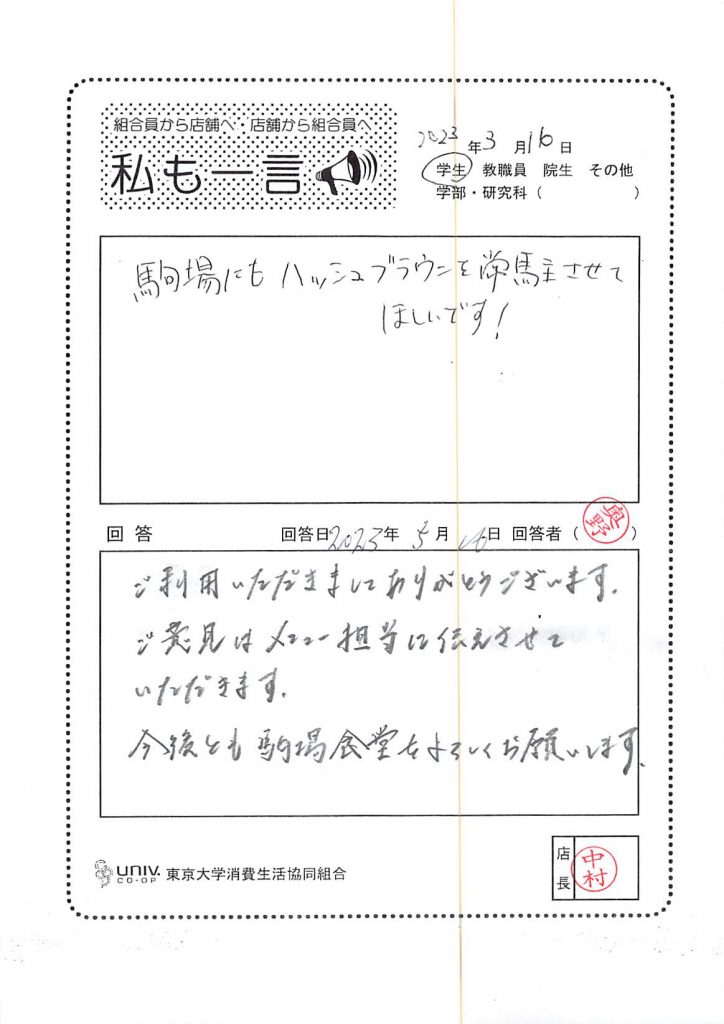 組合員から店舗へ・店舗から組合員へ
私も一言
2023年3月16日
学生 教職員 院生 その他
学部・研究科（ ）
駒場にもハッシュブラウンを常駐させて
ほしいです！
回答 回答日2023年5月16日 回答者（奥野）
ご利用いただきましてありがとうございます。
ご意見はメニュー担当に伝えさせて
いただきます。
今後とも駒場食堂をよろしくお願いします。
UNIV. CO-OP 東京大学消費生活協同組合
店長 中村